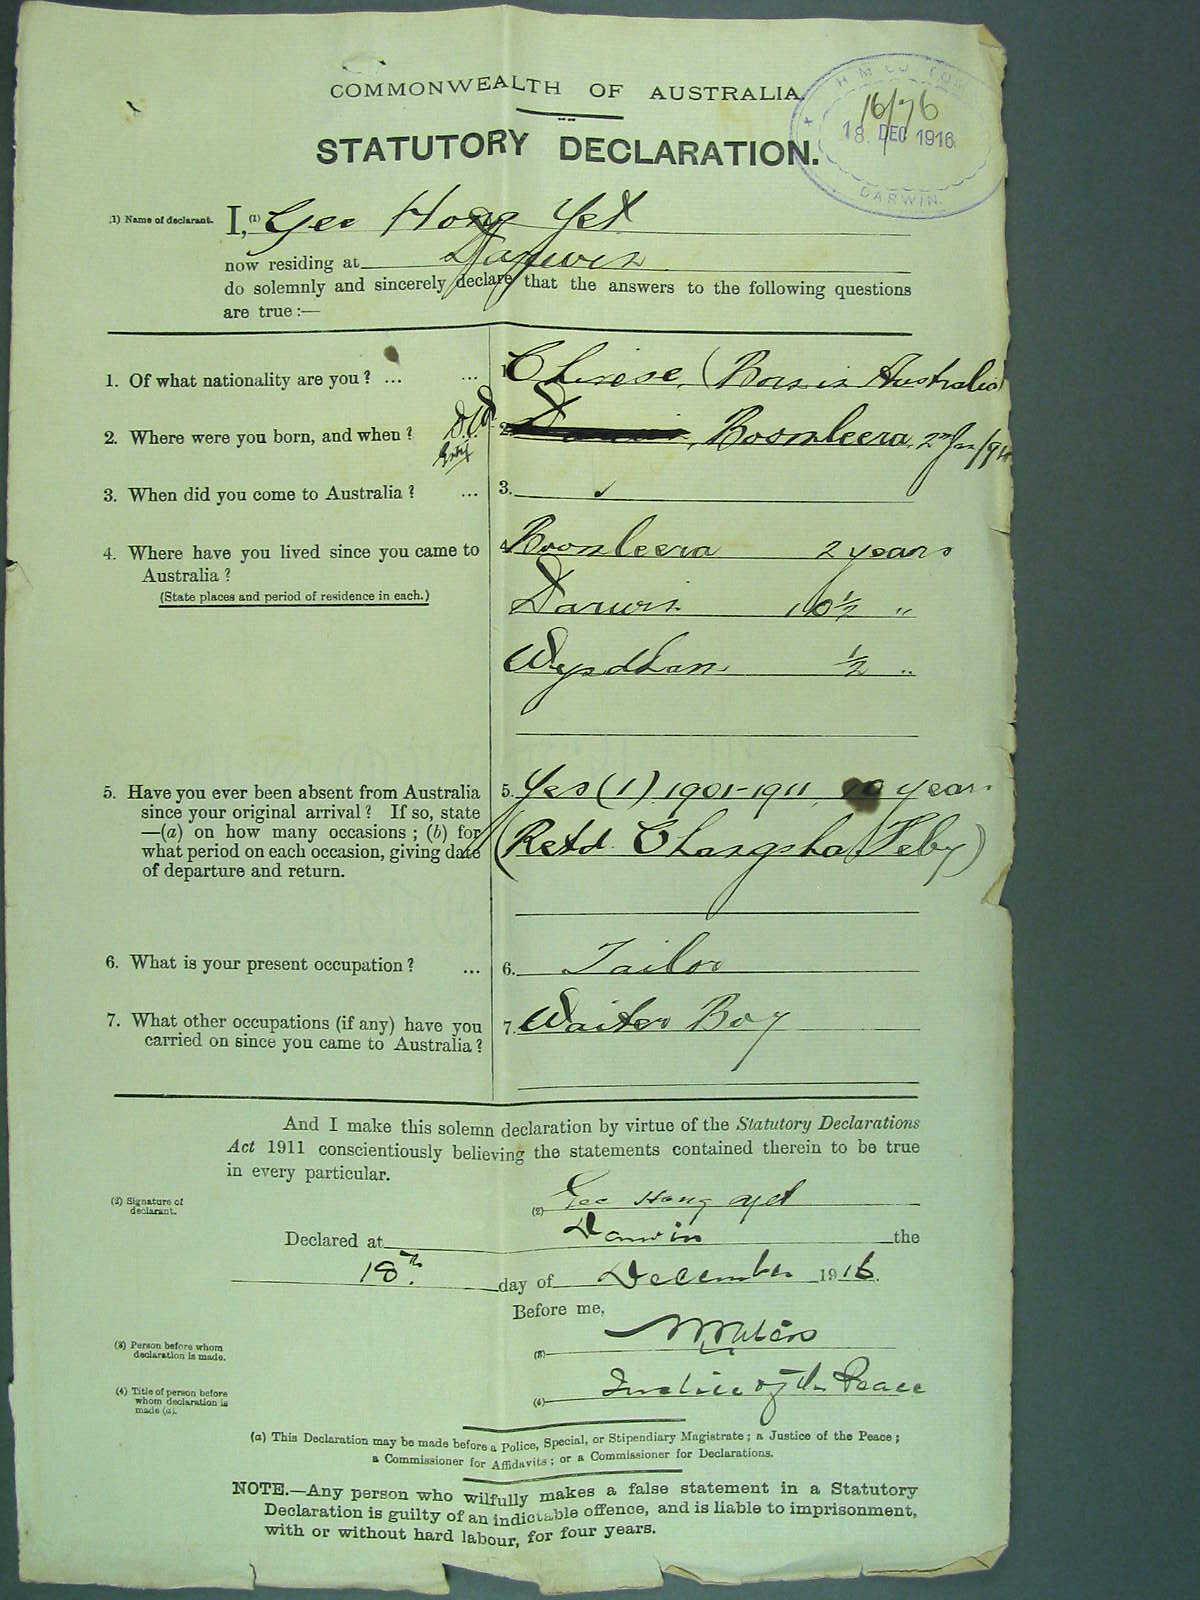 COMMONWEALTH OF AUSTRALIA.
STATUTORY DECLARATION.
H.M. CUSTOMS
16/76
18. DEC 1916
DARWIN.
(1) Name of declarant. I, (1) Gee Hong Yet
now residing at Darwin
do solemnly and sincerely declare that the answers to the following questions
are true :—
1. Of what nationality are you ? ... ... 1. Chinese, (Born in Australia)
2. Where were you born, and when ? 2. Boomleera, 2nd Jan
3. When did you come to Australia ? ... 3. ✓
4. Where have you lived since you came to 4. Boomleera 2 years
Australia ?
(State places and period of residence in each.) Darwin 10½ "
Wyndham ½ "
5. Have you ever been absent from Australia 5. Yes (1) 1901-1911 10 years
since your original arrival ? If so, state
—(a) on how many occasions ; (b) for
what period on each occasion, giving date (Retd Changsha Feby)
of departure and return.
6. What is your present occupation ? ... 6. Tailor
7. What other occupations (if any) have you 7. Waiter Boy
carried on since you came to Australia ?
And I make this solemn declaration by virtue of the Statutory Declarations
Act 1911 conscientiously believing the statements contained therein to be true
in every particular.
(2) Signature of
declarant. (2) Gee Hong Yet
Declared at Darwin the
18th. day of December 1916.
Before me,
(3) Person before whom
declaration is made. (3)
(4) Title of person before
whom declaration is
made (a). (4) Justice of the Peace
(a) This Declaration may be made before a Police, Special, or Stipendiary Magistrate ; a Justice of the Peace ;
a Commissioner for Affidavits ; or a Commissioner for Declarations.
NOTE.—Any person who wilfully makes a false statement in a Statutory
Declaration is guilty of an indictable offence, and is liable to imprisonment,
with or without hard labour, for four years.